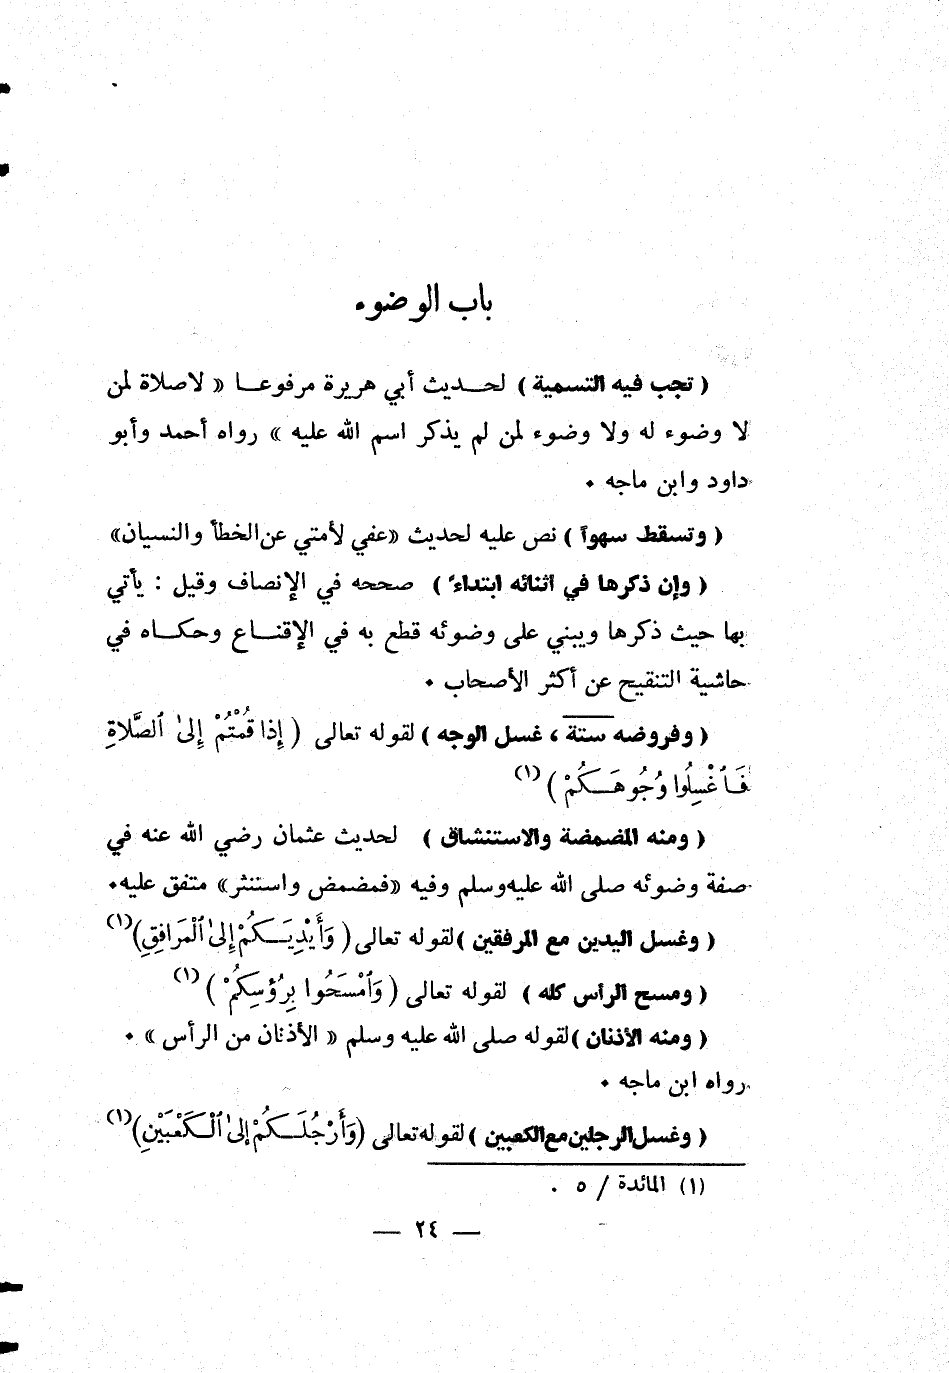 باب الوضوء
( تجب فيه التسمية ) لحـــديث أبي هريرة مرفوعـــا « لاصلاة لمن
لا وضوء له ولا وضوء لمن لم يذكر اسم الله عليه » رواه أحمد وأبو
داود وابن ماجه ٠
( وتسقط سهوآ ) نص عليه لحديث «عفي لأمتي عن الخطأ والنسيان»
( وإن ذكرها في اثنائه ابتداء" ) صححه في الإنصاف وقيل : يأتي
بها حيث ذكرها ويبني على وضوئه قطع به في الإقنـــاع وحكـــاه في
حاشية التنقيح عن أكثر الأصحاب ٠
( وفروضه ستة ، غسل الوجه ) لقوله تعالى ( إِذَا قُمْتُمْ إِلىٰ ٱلصَّلاةِ
فَـٱغْسِلُوا وُجُوهَـكُمْ ) (١)
( ومنه المضمضة والاستنشاق ) لحديث عثمان رضي الله عنه في
صفة وضوئه صلى الله عليه وسلم وفيه «فمضمض واستنثر» متفق عليه٠
( وغسل اليدين مع المرفقين ) لقوله تعالى ( وَأَيْدِيَـكُمْ إِلىٰ ٱلْمَرَافِقِ ) (١)
( ومسح الرأس كله ) لقوله تعالى ( وَٱمْسَحُوا بِرُؤسِكُمْ ) (١)
( ومنه الأذنان ) لقوله صلى الله عليه وسلم « الأذنان من الرأس » ٠
رواه ابن ماجه ٠
( وغسل الرجلين مع الكعبين ) لقوله تعالى ( وَأَرْجُلَـكُمْ إِلىٰ ٱلْـكَعْبَيْنِ ) (١)
(١) المائدة / ٥ ٠
— ٢٤ —